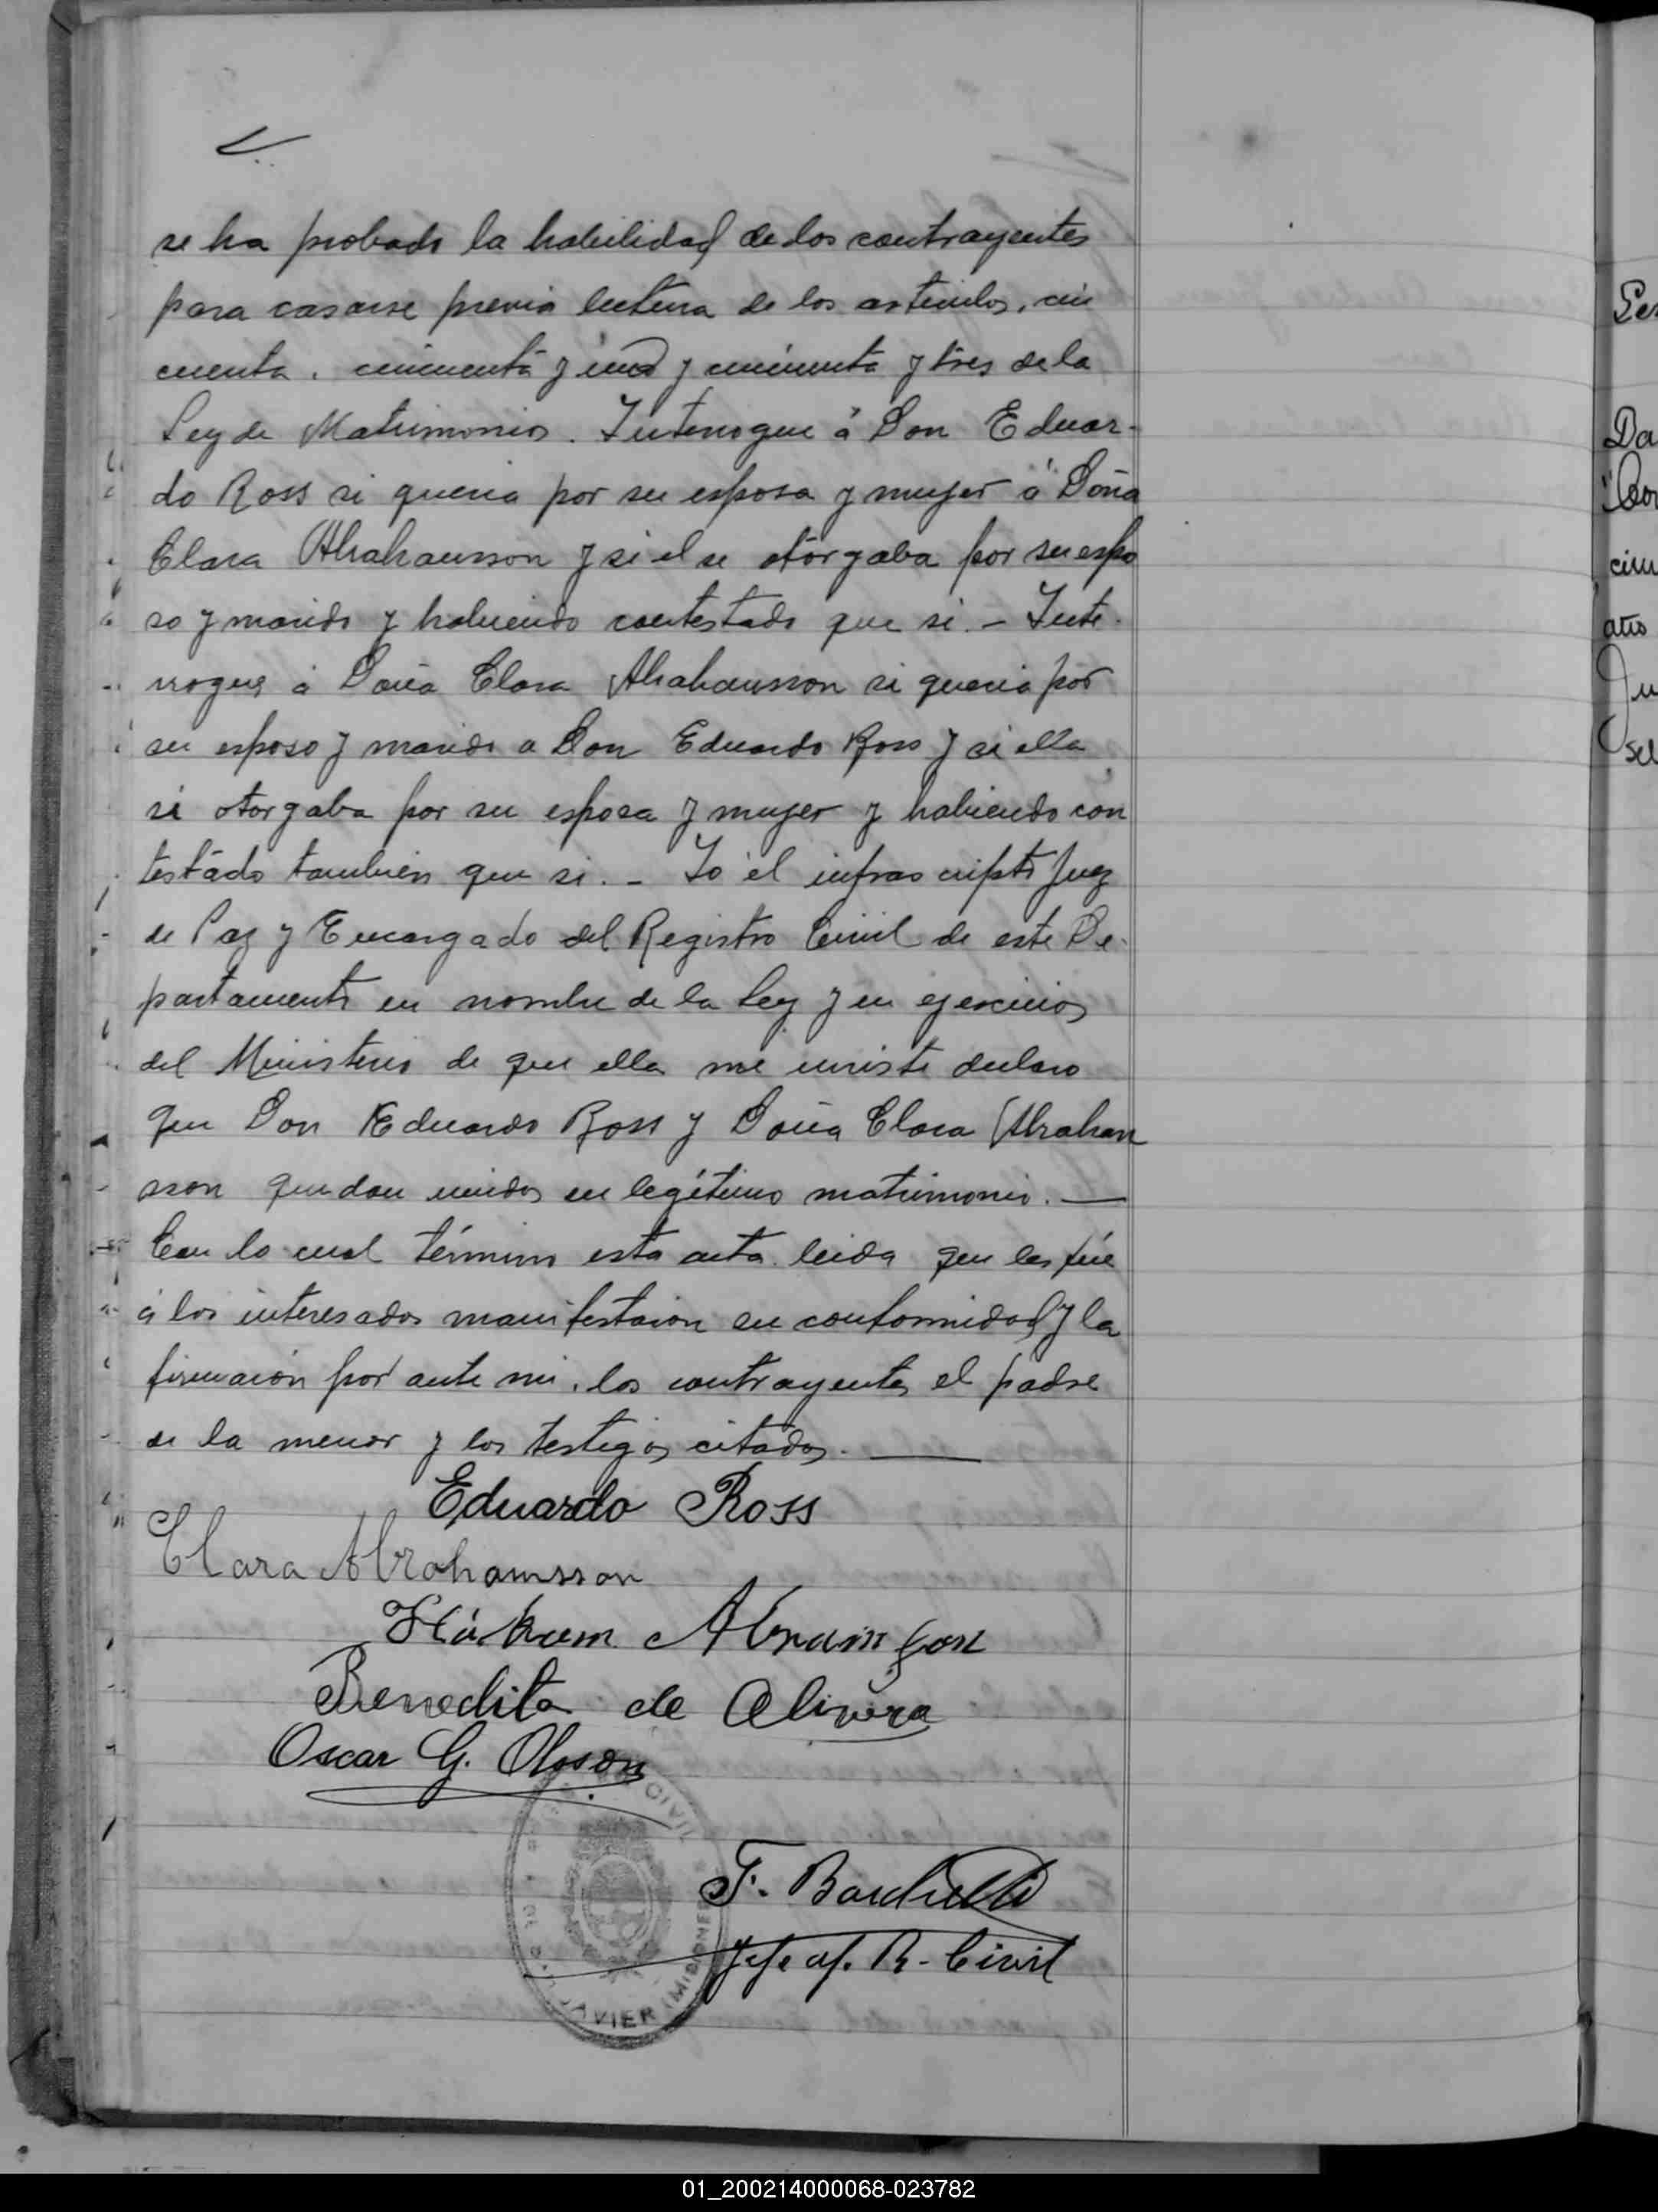 se ha probado la habilidad de los contrayentes
para casarse previa lectura de los articulos, cin
cuenta, cincuenta y uno y cincuenta y tres de la
Ley de Matrimonio. Interrogue á Don Eduar-
do Ross si queria por su esposa y muger á Doña
Clara Abrahamsson y si el se otorgaba por su espo
so y marido y habiendo contestado que si. - Inte-
rrogue á Doña Clara Abrahamsson si queria por
su esposo y marido a Don Eduardo Ross y si ella
si otorgaba por su esposa y muger y habiendo con
testado tambien que si. - Yo el infrascripto Juez
de Paz y Encargado del Registro Civil de este De-
partamento en nombre de la Ley y en ejercicio
del Ministerio de que ella me inviste declaro
que Don Eduardo Ross y Doña Clara Abraham
sson quedan unidos en legítimo matrimonio. —
Con lo cual términó esta acta leida que les fué
á los interesados manifestaron su conformidad y la
firmarón por ante mi, los contrayentes el padre
de la menor y los testigos citados. —
Eduardo Ross
Clara Abrahamsson
Håkum Abramsson
Benedita de Olivera
Oscar G. Olsson
CIVIL
JAVIER (MISIONES)
F.
Jefe of. R. Civil
Da
cin
año
Ju
01_200214000068-023782